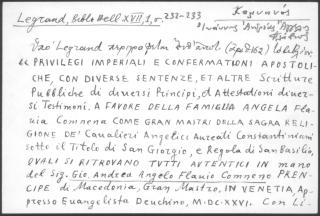 Legrand, Biblo Hell XVII, 1, σ. 232-233
Κομνηνός
Ἰωάννης Ἀνδρέας
Legrand
PRIVILEGI IMPERIALI E CONFERMATIONI APOSTOLI-
CHE, CON DIVERSE SENTENZE, ET ALTRE Scritture
Pubbliche di diversi Principi, et Attestationi diver-
si Testimoni. A FAVORE DELLA FAMIGLIA ANGELA Fla-
uia Comnena COME GRAN MASTRI DELLA SAGRA RELI-
GIONE DE' Caualieri Angelici Aureati Constantiniani
sotto il Titolo di SAN GIORGIO, e Regola di San Basilio,
QUALI SI RITROVANO TVTTI AVTENTICI in mano
del Sig. Gio. Andrea Angelo Flauio Comneno PREN-
CIPE di Macedonia, Gran Mastro, IN VENETIA, Ap-
presso Euangelista Deuchino, M.DC.XXVI. Con Li-